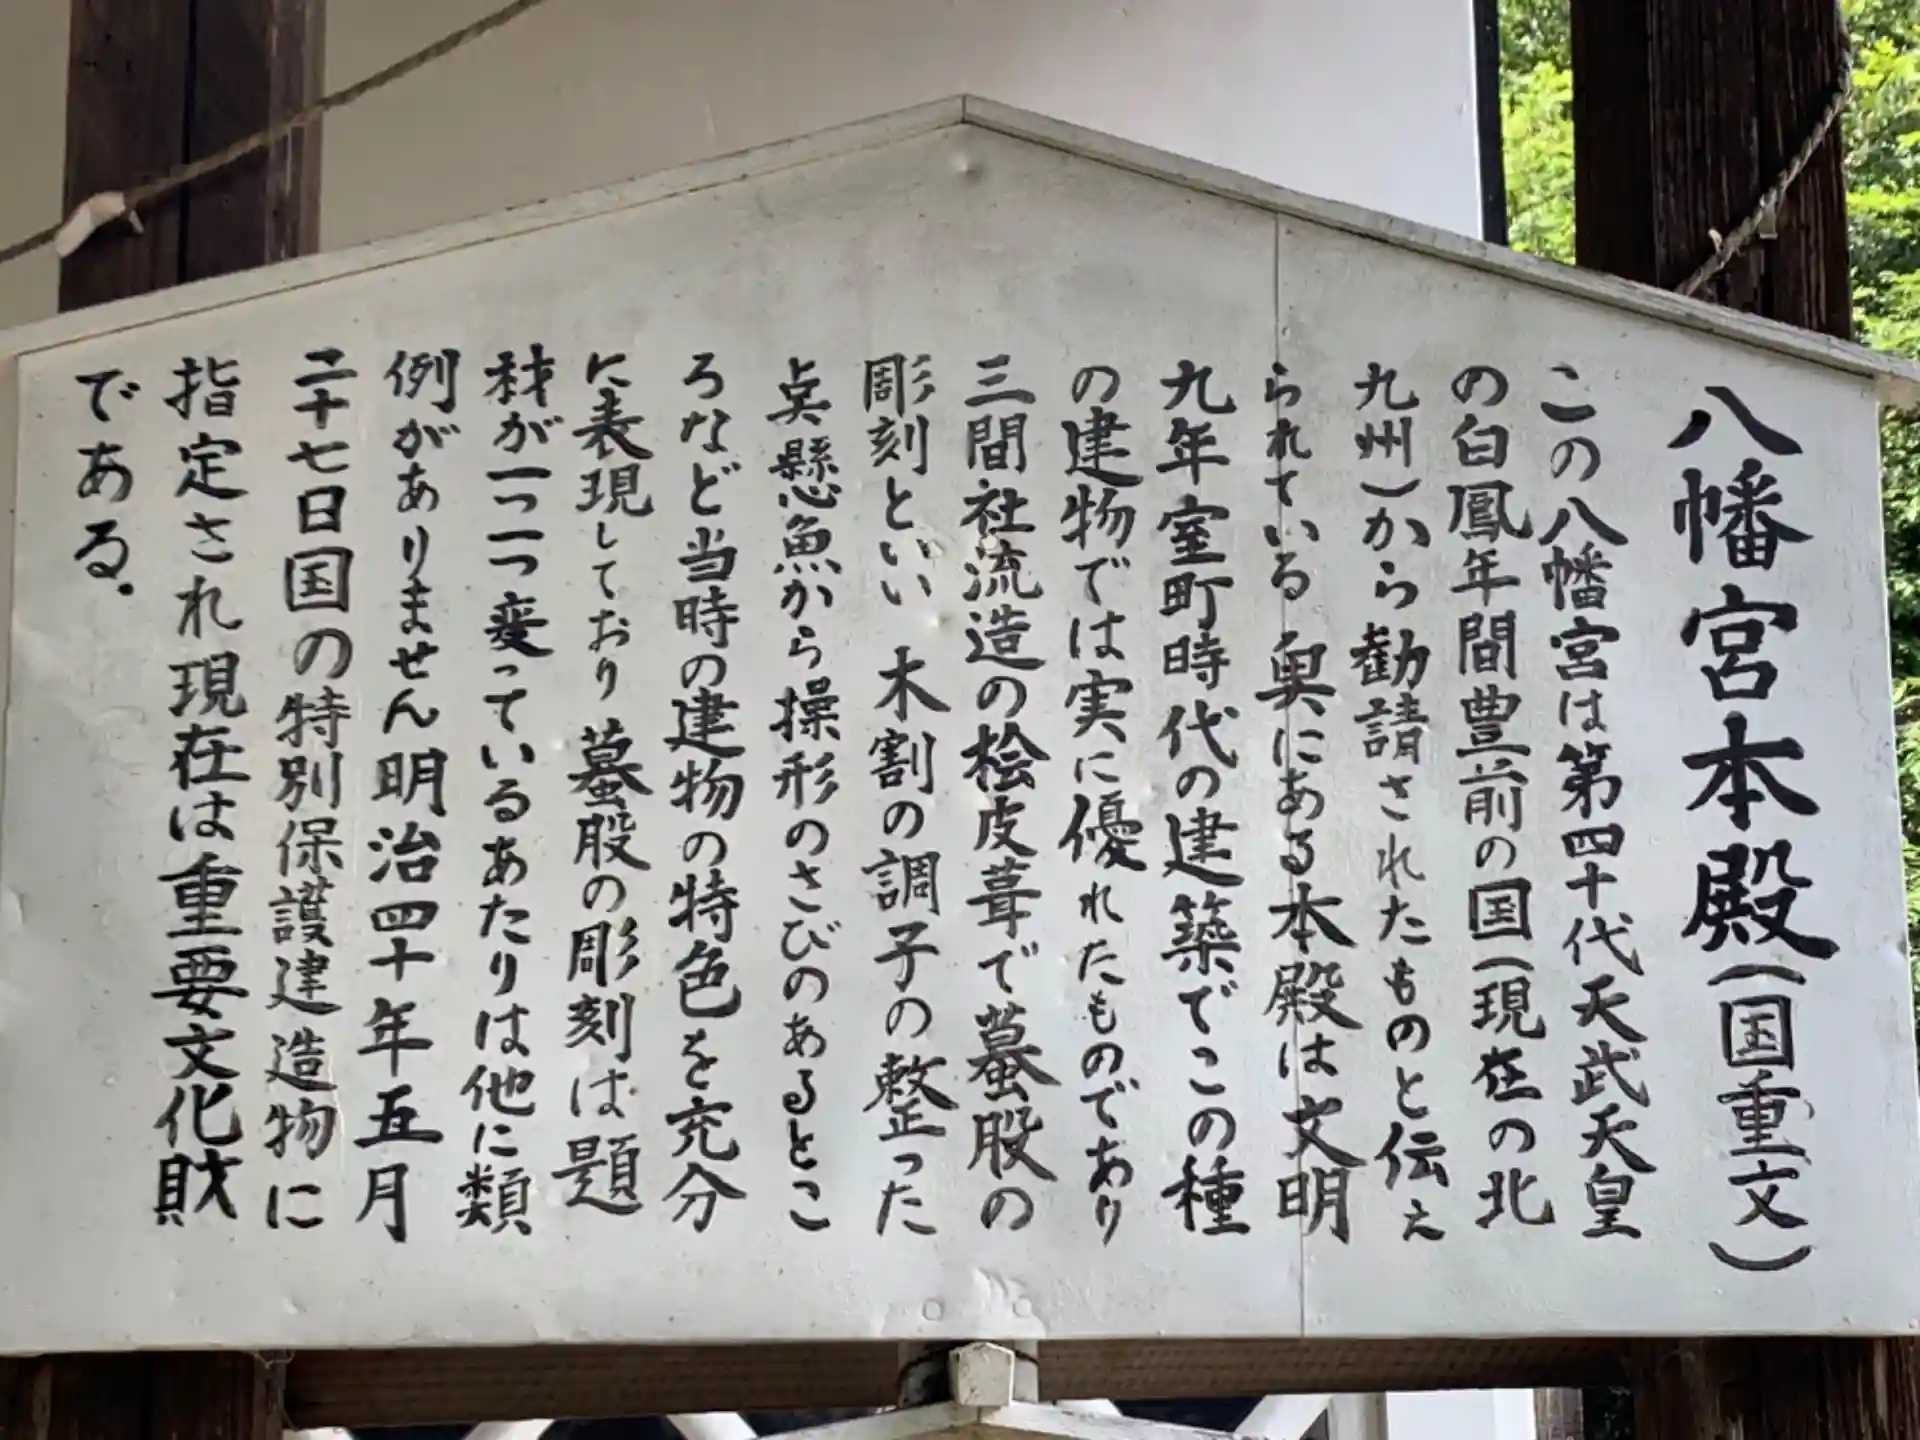 八幡宮本殿(国重文)
この八幡宮は第四十代天武天皇
の白鳳年間豊前の国(現在の北
九州)から勧請されたものと伝え
られている 奥にある本殿は文明
九年室町時代の建築でこの種
の建物では実に優れたものであり
三間社流造の桧皮葺で蟇股の
彫刻といい 木割の調子の整った
点懸魚から操形のさびのあるとこ
ろなど当時の建物の特色を充分
に表現しており 蟇股の彫刻は題
材が一つ一つ変っているあたりは他に類
例がありません 明治四十年五月
二十七日国の特別保護建造物に
指定され現在は重要文化財
である.